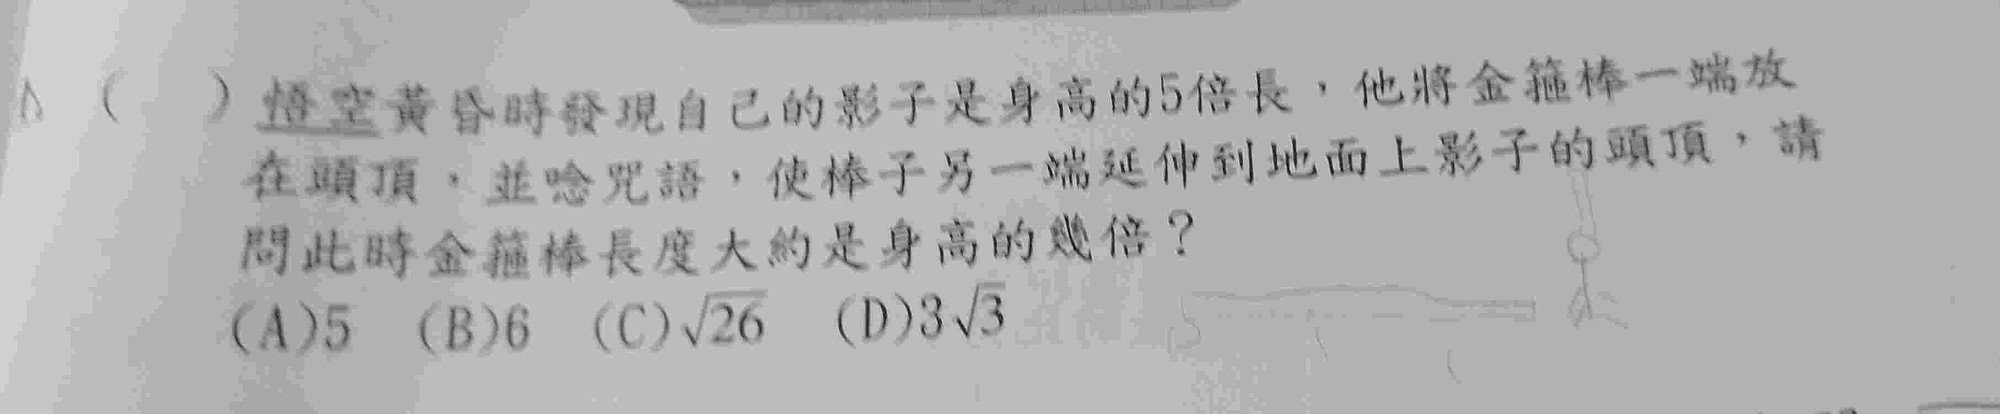 ( ) 悟空黃昏時發現自己的影子是身高的5倍長，他將金箍棒一端放
在頭頂，並唸咒語，使棒子另一端延伸到地面上影子的頭頂，請
問此時金箍棒長度大約是身高的幾倍？
(A)5 (B)6 (C)√26 (D)3√3